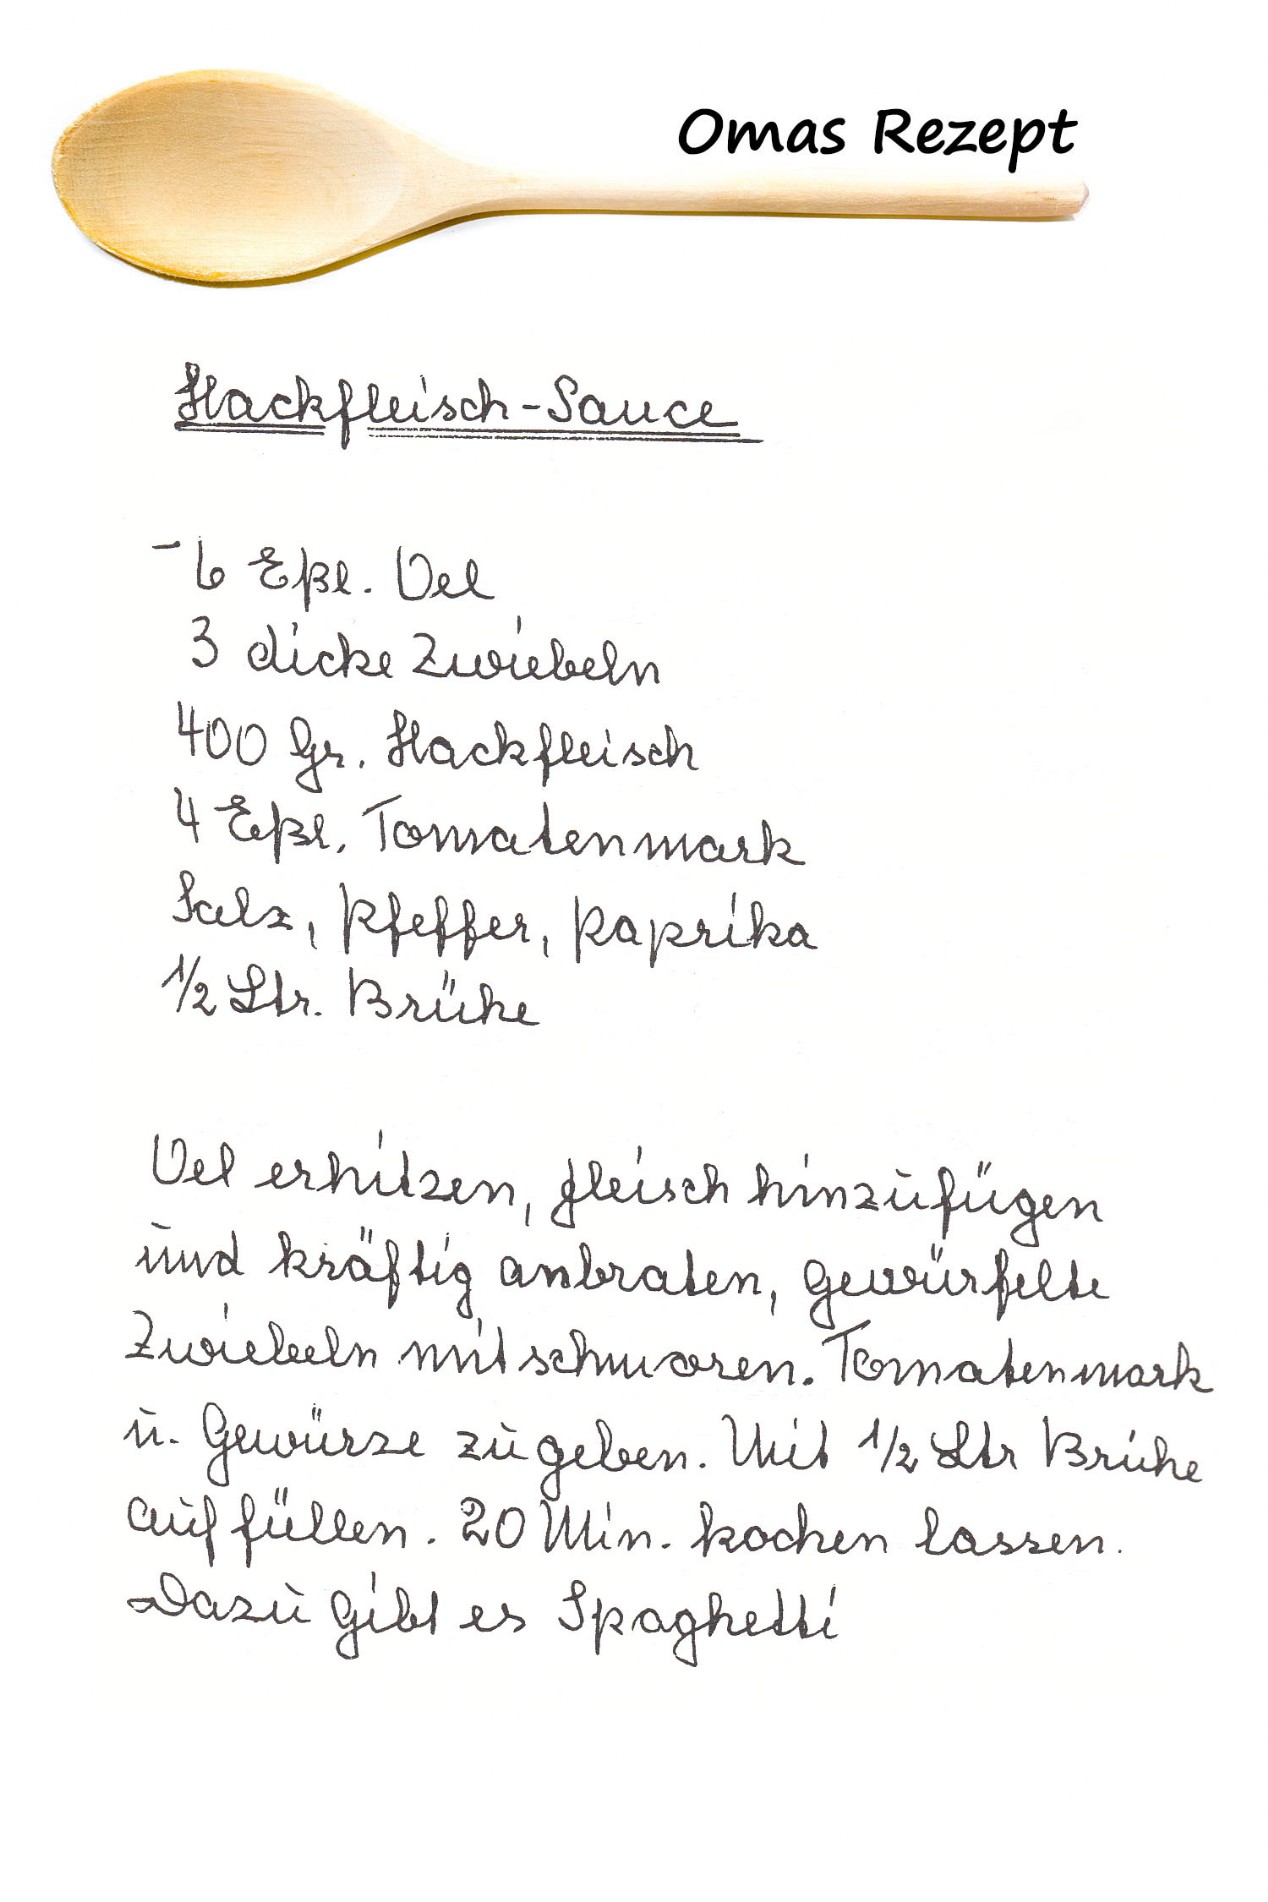 Omas Rezept
Hackfleisch-Sauce
- 6 Eßl. Oel
3 dicke Zwiebeln
400 Gr. Hackfleisch
4 Eßl. Tomatenmark
Salz, Pfeffer, Paprika
1/2 Ltr. Brühe
Oel erhitzen, fleisch hinzufügen
und kräftig anbraten, gewürfelte
Zwiebeln mitschmoren. Tomatenmark
u. Gewürze zugeben. Mit 1/2 Ltr Brühe
auffüllen. 20 Min. kochen lassen.
Dazu gibt es Spaghetti